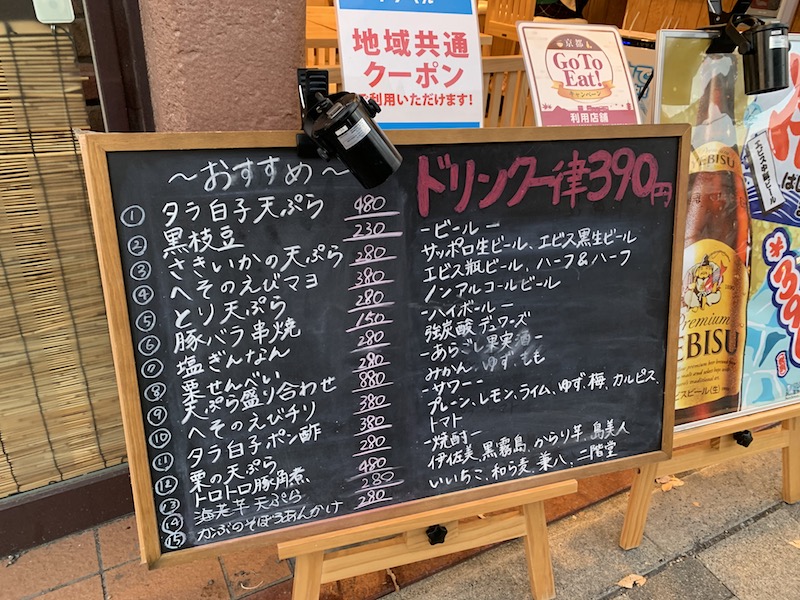 地域共通
クーポン
ご利用いただけます!
京都
Go To
Eat!
キャンペーン
利用店舗
～おすすめ～
① タラ白子天ぷら 480
② 黒枝豆 230
③ さきいかの天ぷら 280
④ へそのえびマヨ 380
⑤ とり天ぷら 280
⑥ 豚バラ串焼 150
⑦ 塩ぎんなん 280
⑧ 栗せんべい 280
⑨ 天ぷら盛り合わせ 880
⑩ へそのえびチリ 380
⑪ タラ白子ポン酢 380
⑫ 栗の天ぷら 280
⑬ トロトロ豚角煮 480
⑭ 海老芋天ぷら 280
⑮ かぶのそぼろあんかけ 280
ドリンク一律390円
－ビール－
サッポロ生ビール、エビス黒生ビール
エビス瓶ビール、ハーフ&ハーフ
ノンアルコールビール
－ハイボール－
強炭酸デュワーズ
－あらごし果実酒－
みかん、ゆず、もも
－サワー－
プレーン、レモン、ライム、ゆず、梅、カルピス、
トマト
－焼酎－
伊佐美、黒霧島、からり芋、島美人
いいちこ、和ら麦、兼八、二階堂
EBISU
Premium
EBISU
ヱビス中瓶ビール